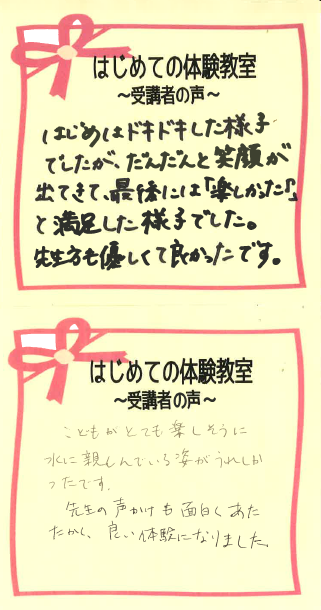 はじめての体験教室
〜受講者の声〜
はじめはドキドキした様子
でしたが、だんだんと笑顔が
出てきて、最後には「楽しかった!」
と満足した様子でした。
先生方も優しくて良かったです。
はじめての体験教室
〜受講者の声〜
こどもがとても楽しそうに
水に親しんでいる姿がうれしか
ったです。
先生の声かけも面白くあた
たかく、良い体験になりました。